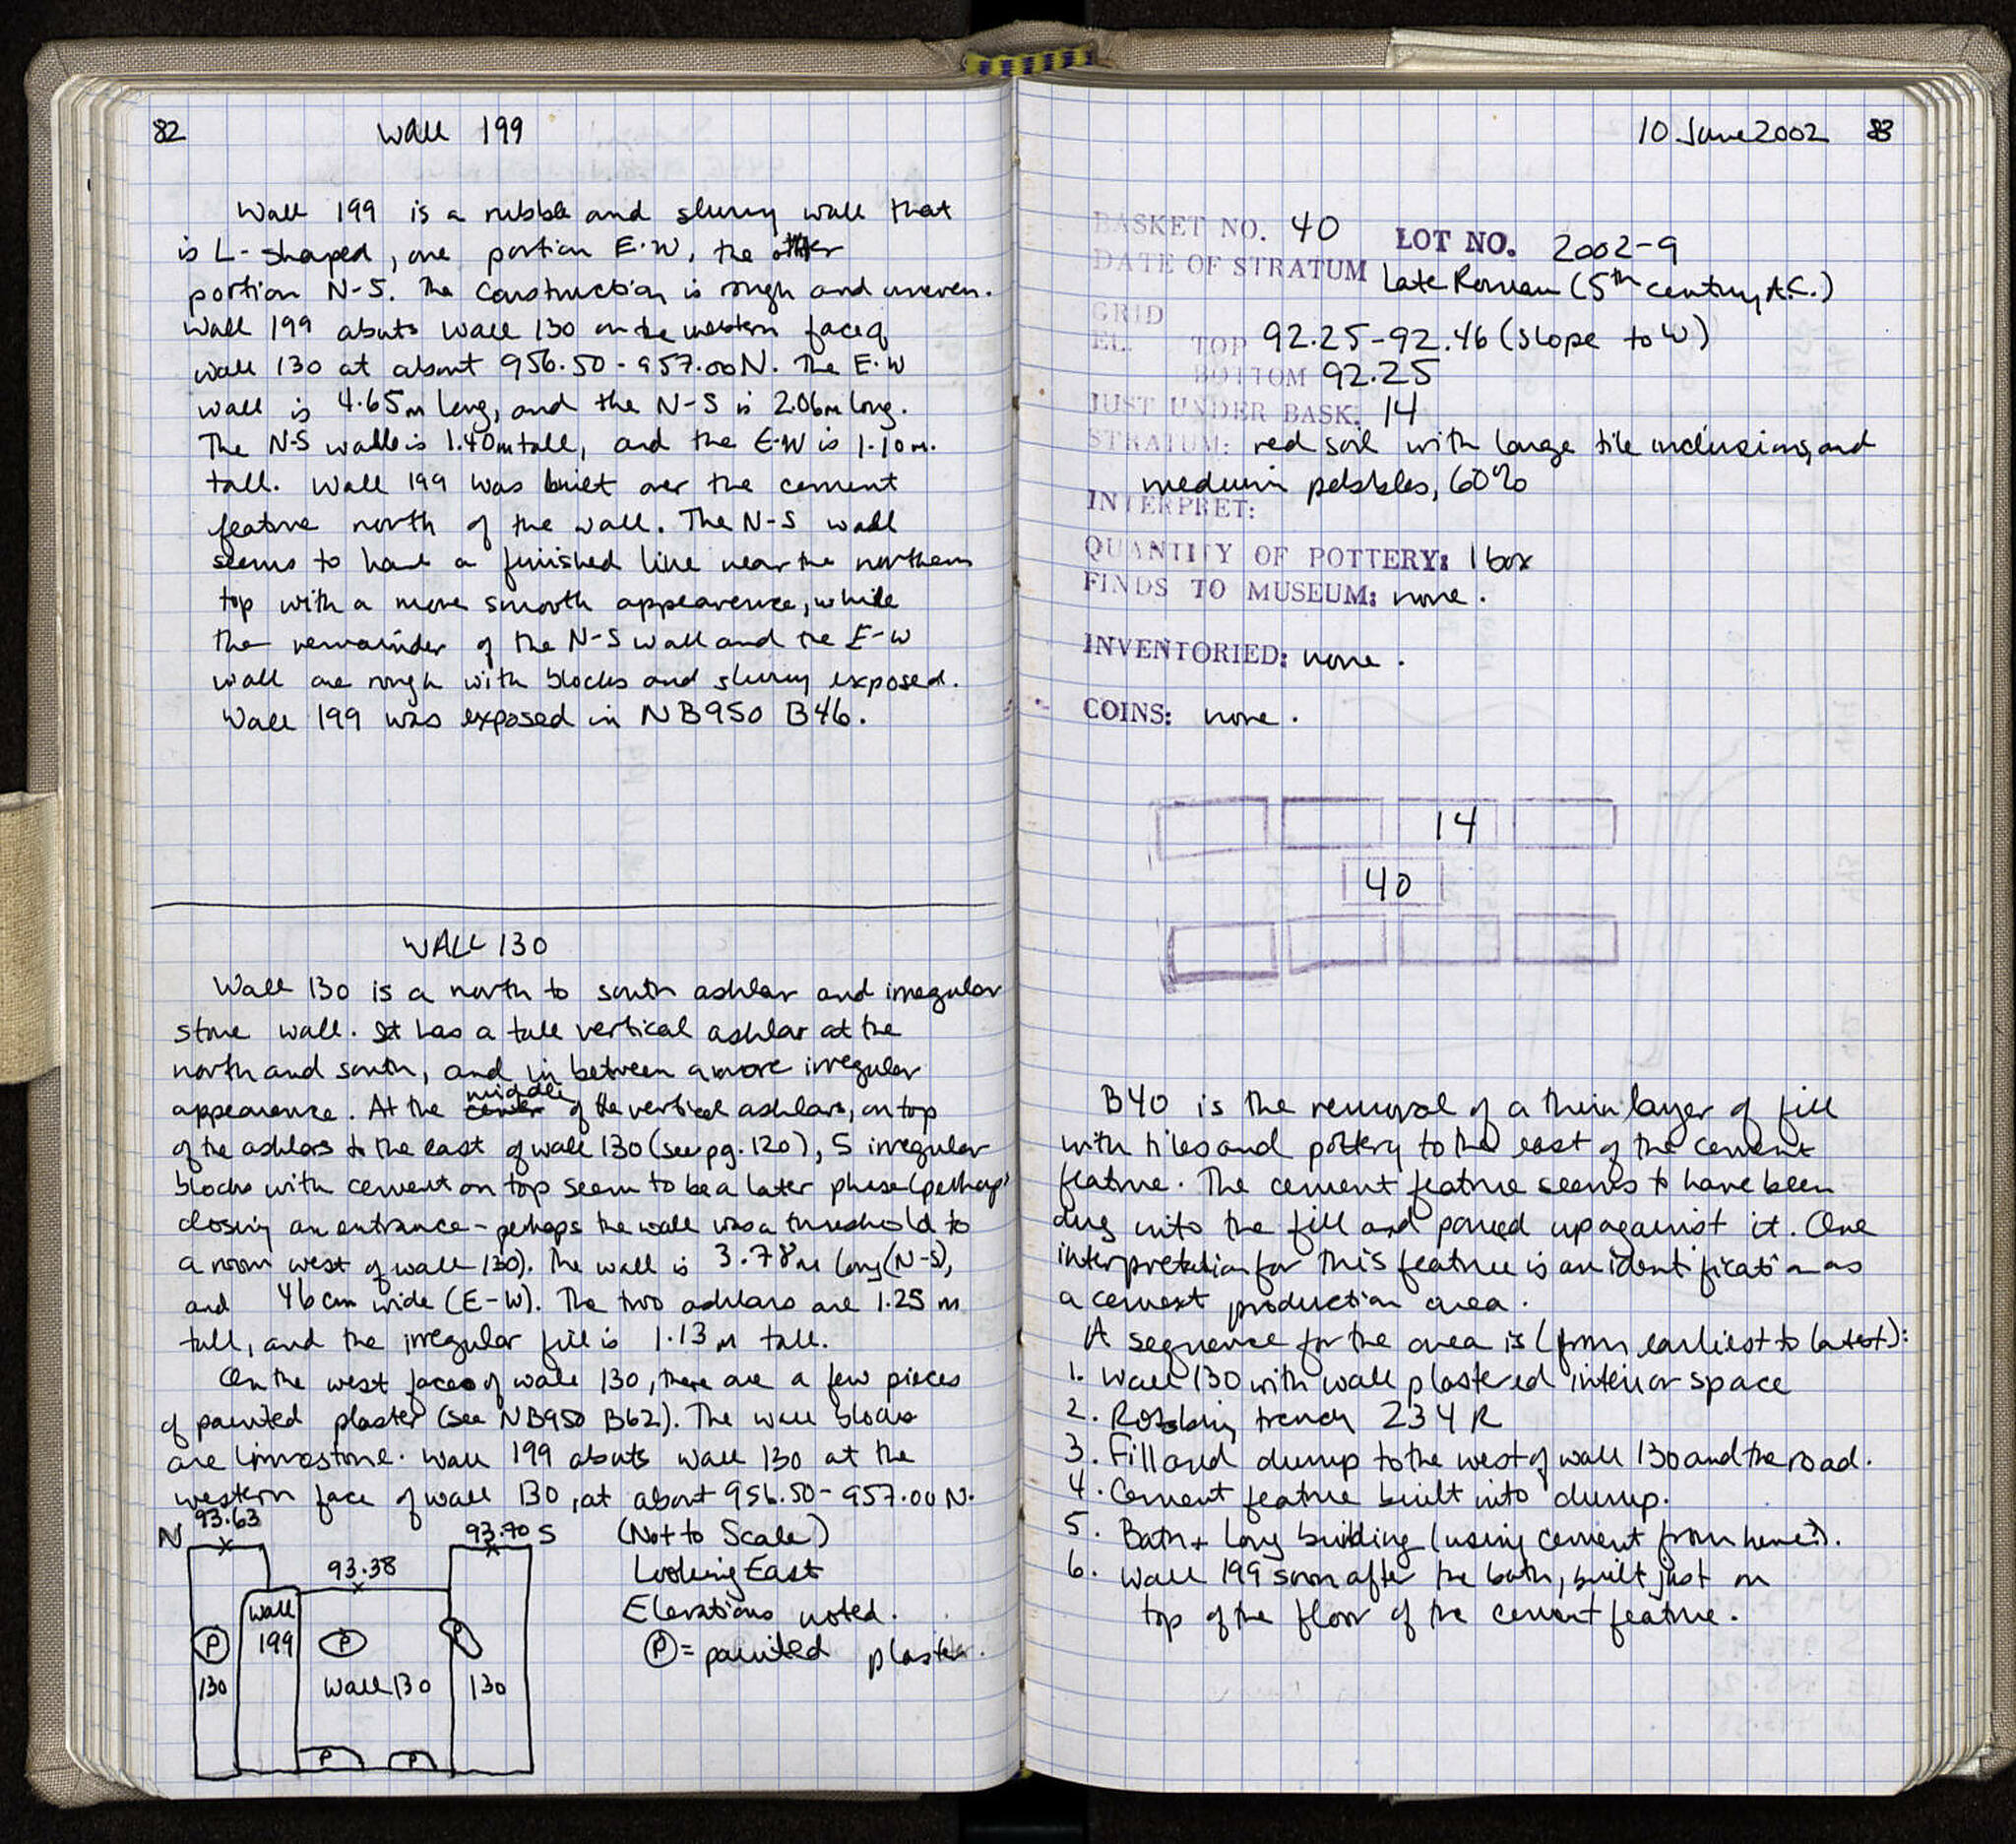 82
Wall 199
Wall 199 is a rubble and slurry wall that
is L-shaped, one portion E-W, the other
portion N-S. The construction is rough and uneven.
Wall 199 abuts wall 130 on the western face of
wall 130 at about 956.50-957.00N. The E-W
wall is 4.65m long, and the N-S is 2.06m long.
The N-S wall is 1.40m tall, and the E-W is 1.10m.
tall. Wall 199 was built over the cement
feature north of the wall. The N-S wall
seems to have a finished line near the northern
top with a more smooth appearence, while
the remainder of the N-S wall and the E-W
wall are rough with blocks and slurry exposed.
Wall 199 was exposed in NB950 B46.
WALL 130
Wall 130 is a north to south ashlar and irregular
stone wall. It has a tall vertical ashlar at the
north and south, and in between a more irregular
appearence. At the center middle of the vertical ashlars, on top
of the ashlars to the east of wall 130 (see pg. 120), 5 irregular
blocks with cement on top seem to be a later phase (perhaps
closing an entrance - perhaps the wall was a threshold to
a room west of wall 130). The wall is 3.78m long (N-S),
and 46cm wide (E-W). The two ashlars are 1.25 m
tall, and the irregular fill is 1.13 m tall.
On the west face of wall 130, there are a few pieces
of painted plaster (see NB950 B62). The wall blocks
are limestone. Wall 199 abuts wall 130 at the
western face of wall 130, at about 956.50-957.00 N.
N 93.63
93.70 S
(Not to Scale)
93.38
Looking East
Elevations noted.
P = painted plaster.
Wall
199
P
P
P
130
Wall 130
130
P
P
10 June 2002 83
BASKET NO. 40
LOT NO. 2002-9
DATE OF STRATUM Late Roman (5th century A.C.)
GRID
EL. TOP 92.25-92.46 (slope to W)
BOTTOM 92.25
JUST UNDER BASK. 14
STRATUM: red soil with large tile inclusions, and
medium pebbles, 60%
INTERPRET:
QUANTITY OF POTTERY: 1 box
FINDS TO MUSEUM: none.
INVENTORIED: none.
COINS: none.
14
40
B40 is the removal of a thin layer of fill
with tiles and pottery to the east of the cement
feature. The cement feature seems to have been
dug into the fill and poured up against it. One
interpretation for this feature is an identification as
a cement production area.
A sequence for the area is (from earliest to latest):
1. Wall 130 with wall plastered interior space
2. Robbing trench 234 R
3. Fill and dump to the west of wall 130 and the road.
4. Cement feature built into dump.
5. Bath + Long building (using cement from here?).
6. Wall 199 soon after the bath, built just on
top of the floor of the cement feature.